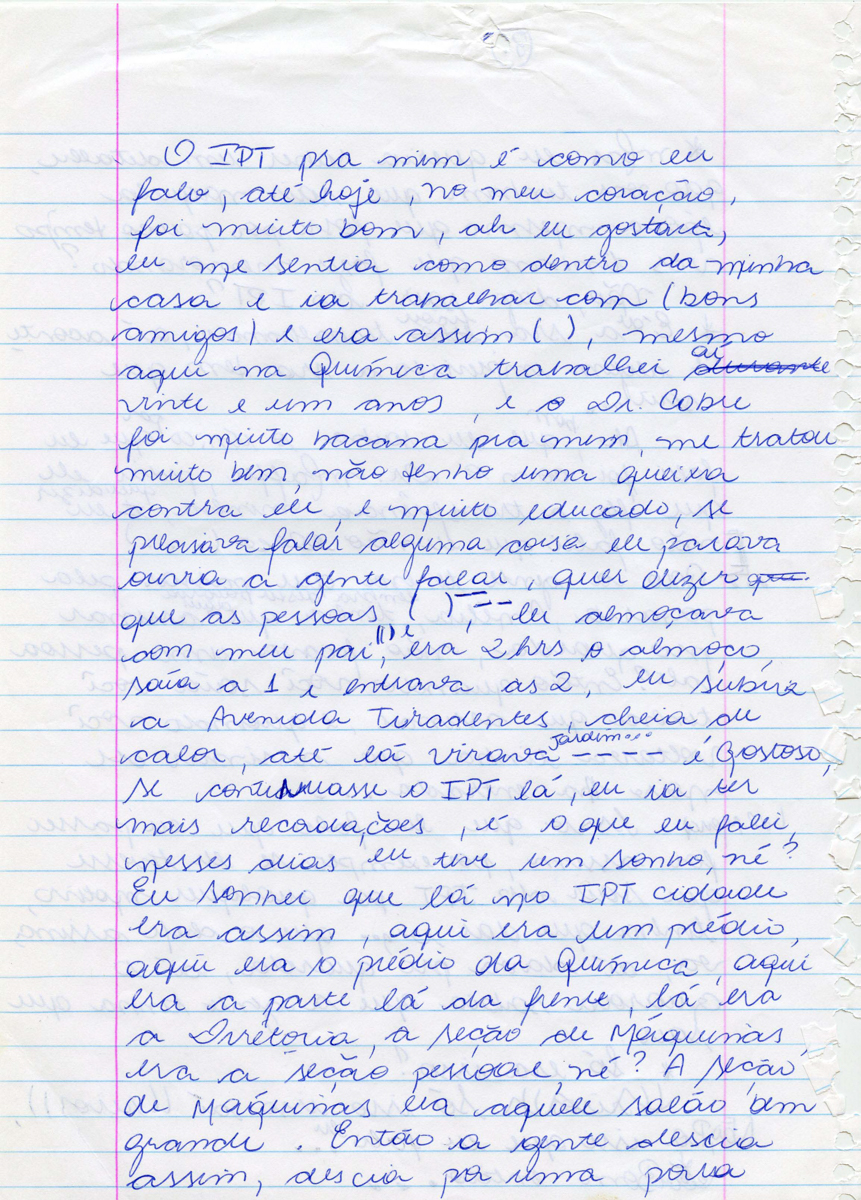 O IPT pra mim é como eu
falo, até hoje, no meu coração,
foi muito bom, ah eu gostava,
eu me sentia como dentro da minha
casa e ia trabalhar com (bons
amigos) e era assim ( ), mesmo
aqui na Química trabalhei aí durante
vinte e um anos, e o Dr. Cobre
foi muito bacana pra mim, me tratou
muito bem, não tenho uma queixa
contra ele, é muito educado, se
precisava falar alguma coisa ele parava
ouvia a gente falar, quer dizer que
que as pessoas ( ), -- eu almoçava
com meu pai, (() e era 2 hrs o almoço,
saía a 1 e entrava as 2, eu subia
a Avenida Tiradentes, cheia de
calor, até lá virava jardim... ---- é gostoso,
se continuasse o IPT lá, eu ia ter
mais recordações, é o que eu falei,
nesses dias eu tive um sonho, né?
Eu sonhei que lá no IPT cidade
era assim, aqui era um prédio,
aqui era o prédio da Química, aqui
era a parte lá da frente, lá era
a Diretoria, a seção de Máquinas
era a seção pessoal, né? A seção
de Máquinas era aquele salão bem
grande. Então a gente descia
assim, descia por uma porta